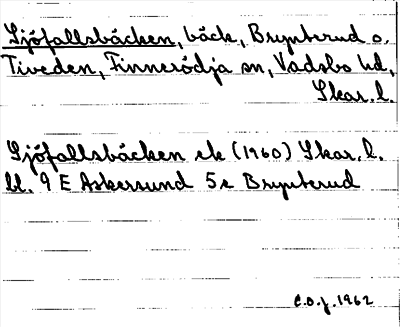 Sjöfallsbäcken, bäck, Brynterud o.
Tiveden, Finnerödja sn, Vadsbo hd,
Skar. l.
Sjöfallsbäcken ek (1960) Skar. l.
bl. 9 E Askersund 5e Brynterud
C.O.J. 1962